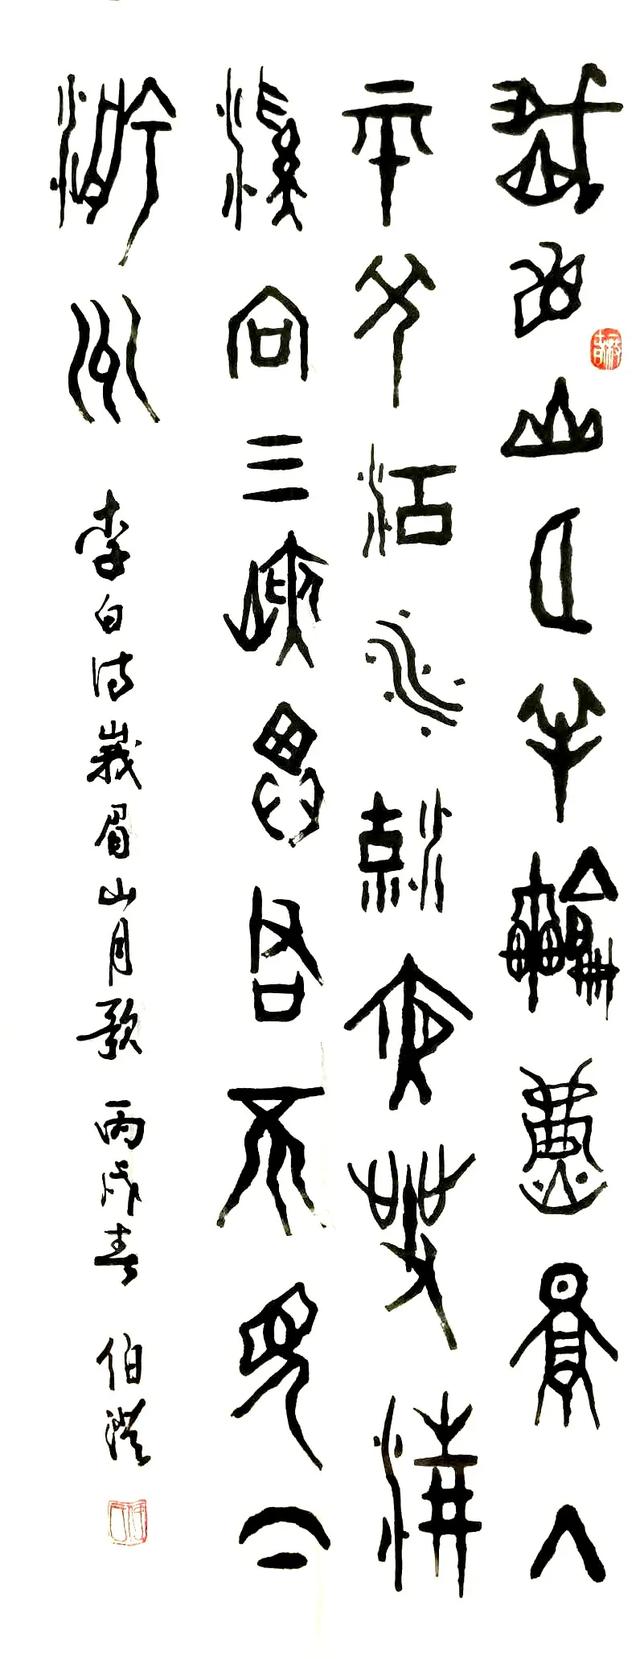 峨眉山月半輪秋影入
平羌江水流夜發清
溪向三峽思君不見下
渝州 李白诗峩眉山月歌 丙戌春 伯